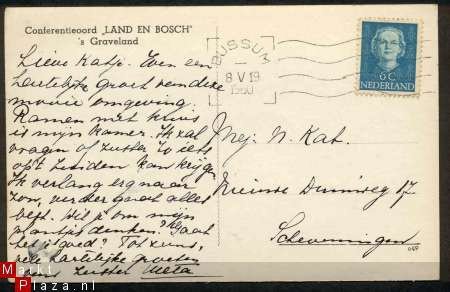 Conferentieoord „LAND EN BOSCH”
's Graveland
Lieve Katji. Even een
hartelijke groet van deze
mooie omgeving.
Ramen met kruis
is mijn kamer. Ik zal
vragen of zuster iets
op 't zuiden kan krijgen
Ik verlang erg naar
zon, verder groot alles
best. Wil je om mijn
plantjes denken? Gaat
het goed? Tot ziens,
vele hartelijke groeten
zuster Meta
BUSSUM
8 V 19
1950
6 C
NEDERLAND
Mej. N. Kat.
Nieuwe Duinweg 17.
Scheveningen
Markt
Plaza.nl